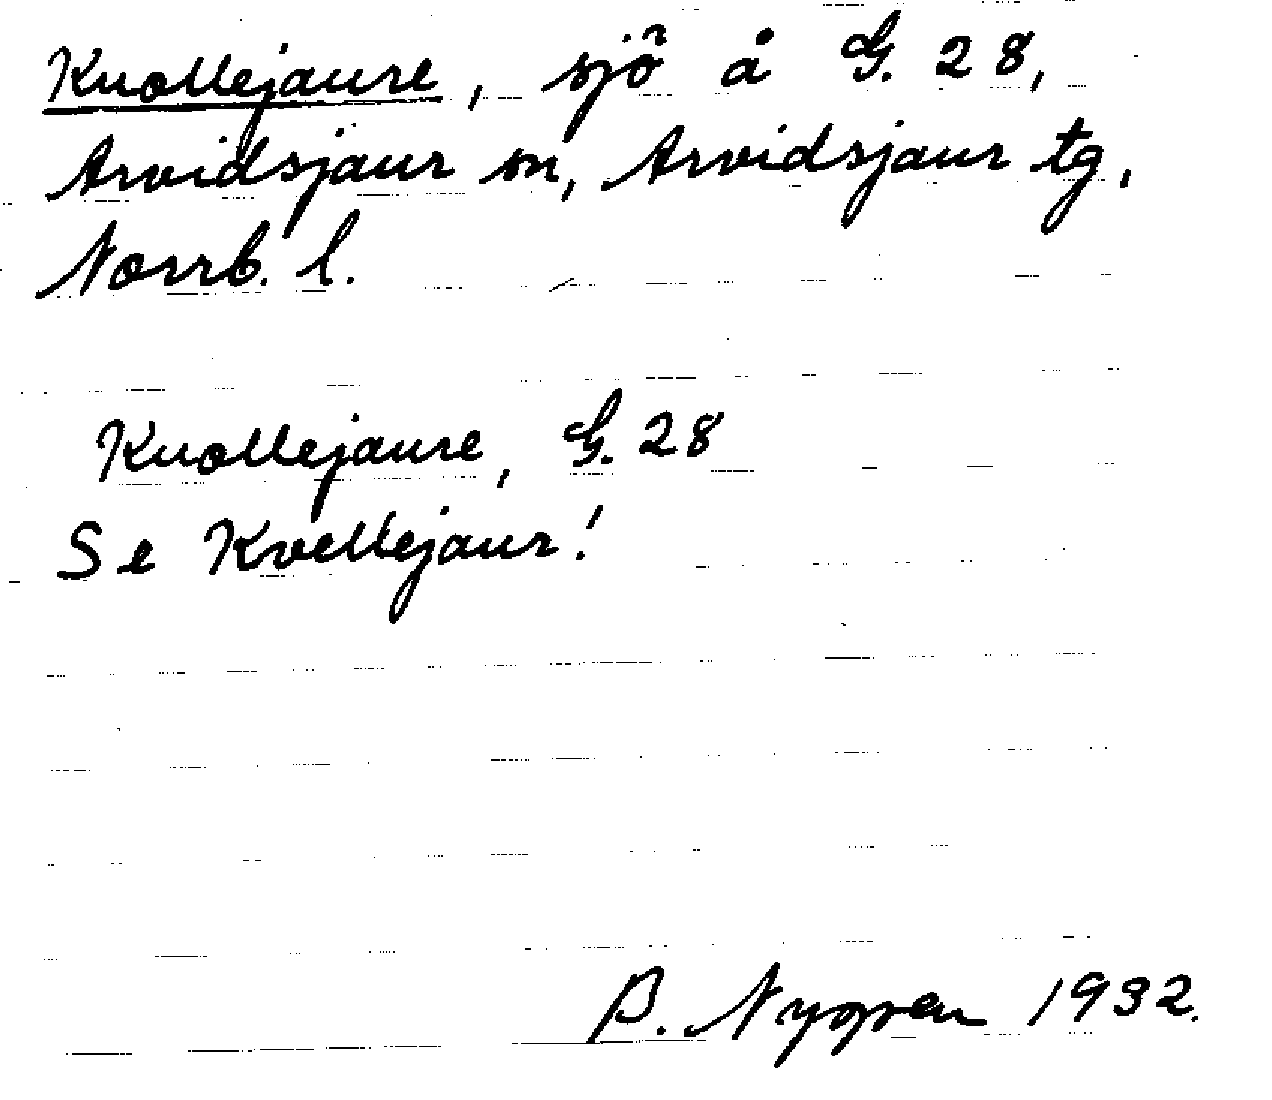 Kuollejaure, sjö å G. 28,
Arvidsjaur sn, Arvidsjaur tg,
Norrb. l.
Kuollejaure, G. 28
Se Kvellejaur!
B. Nygren 1932.